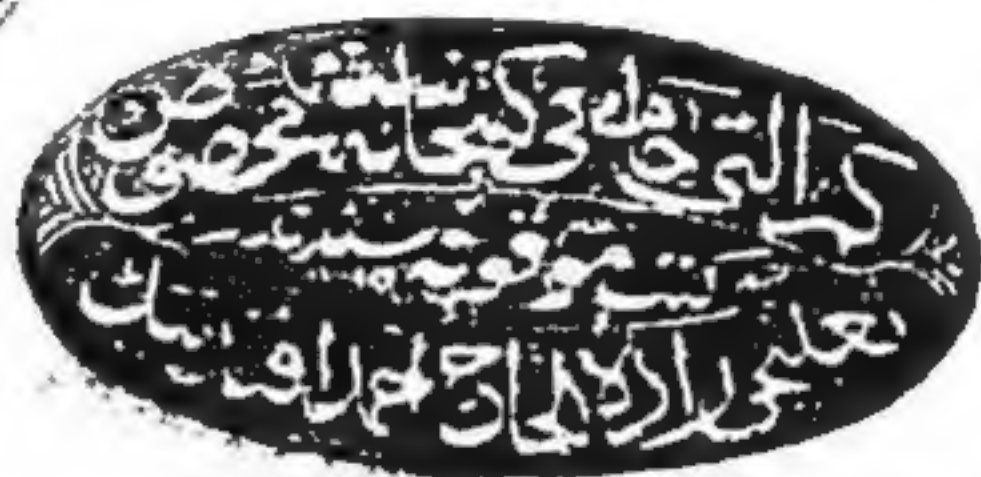 كمر التى جامعى كتبخانه سنه مخصوص
كتب موقوفه سيدر
نعلبجى زاده الحاج احمد افندينك